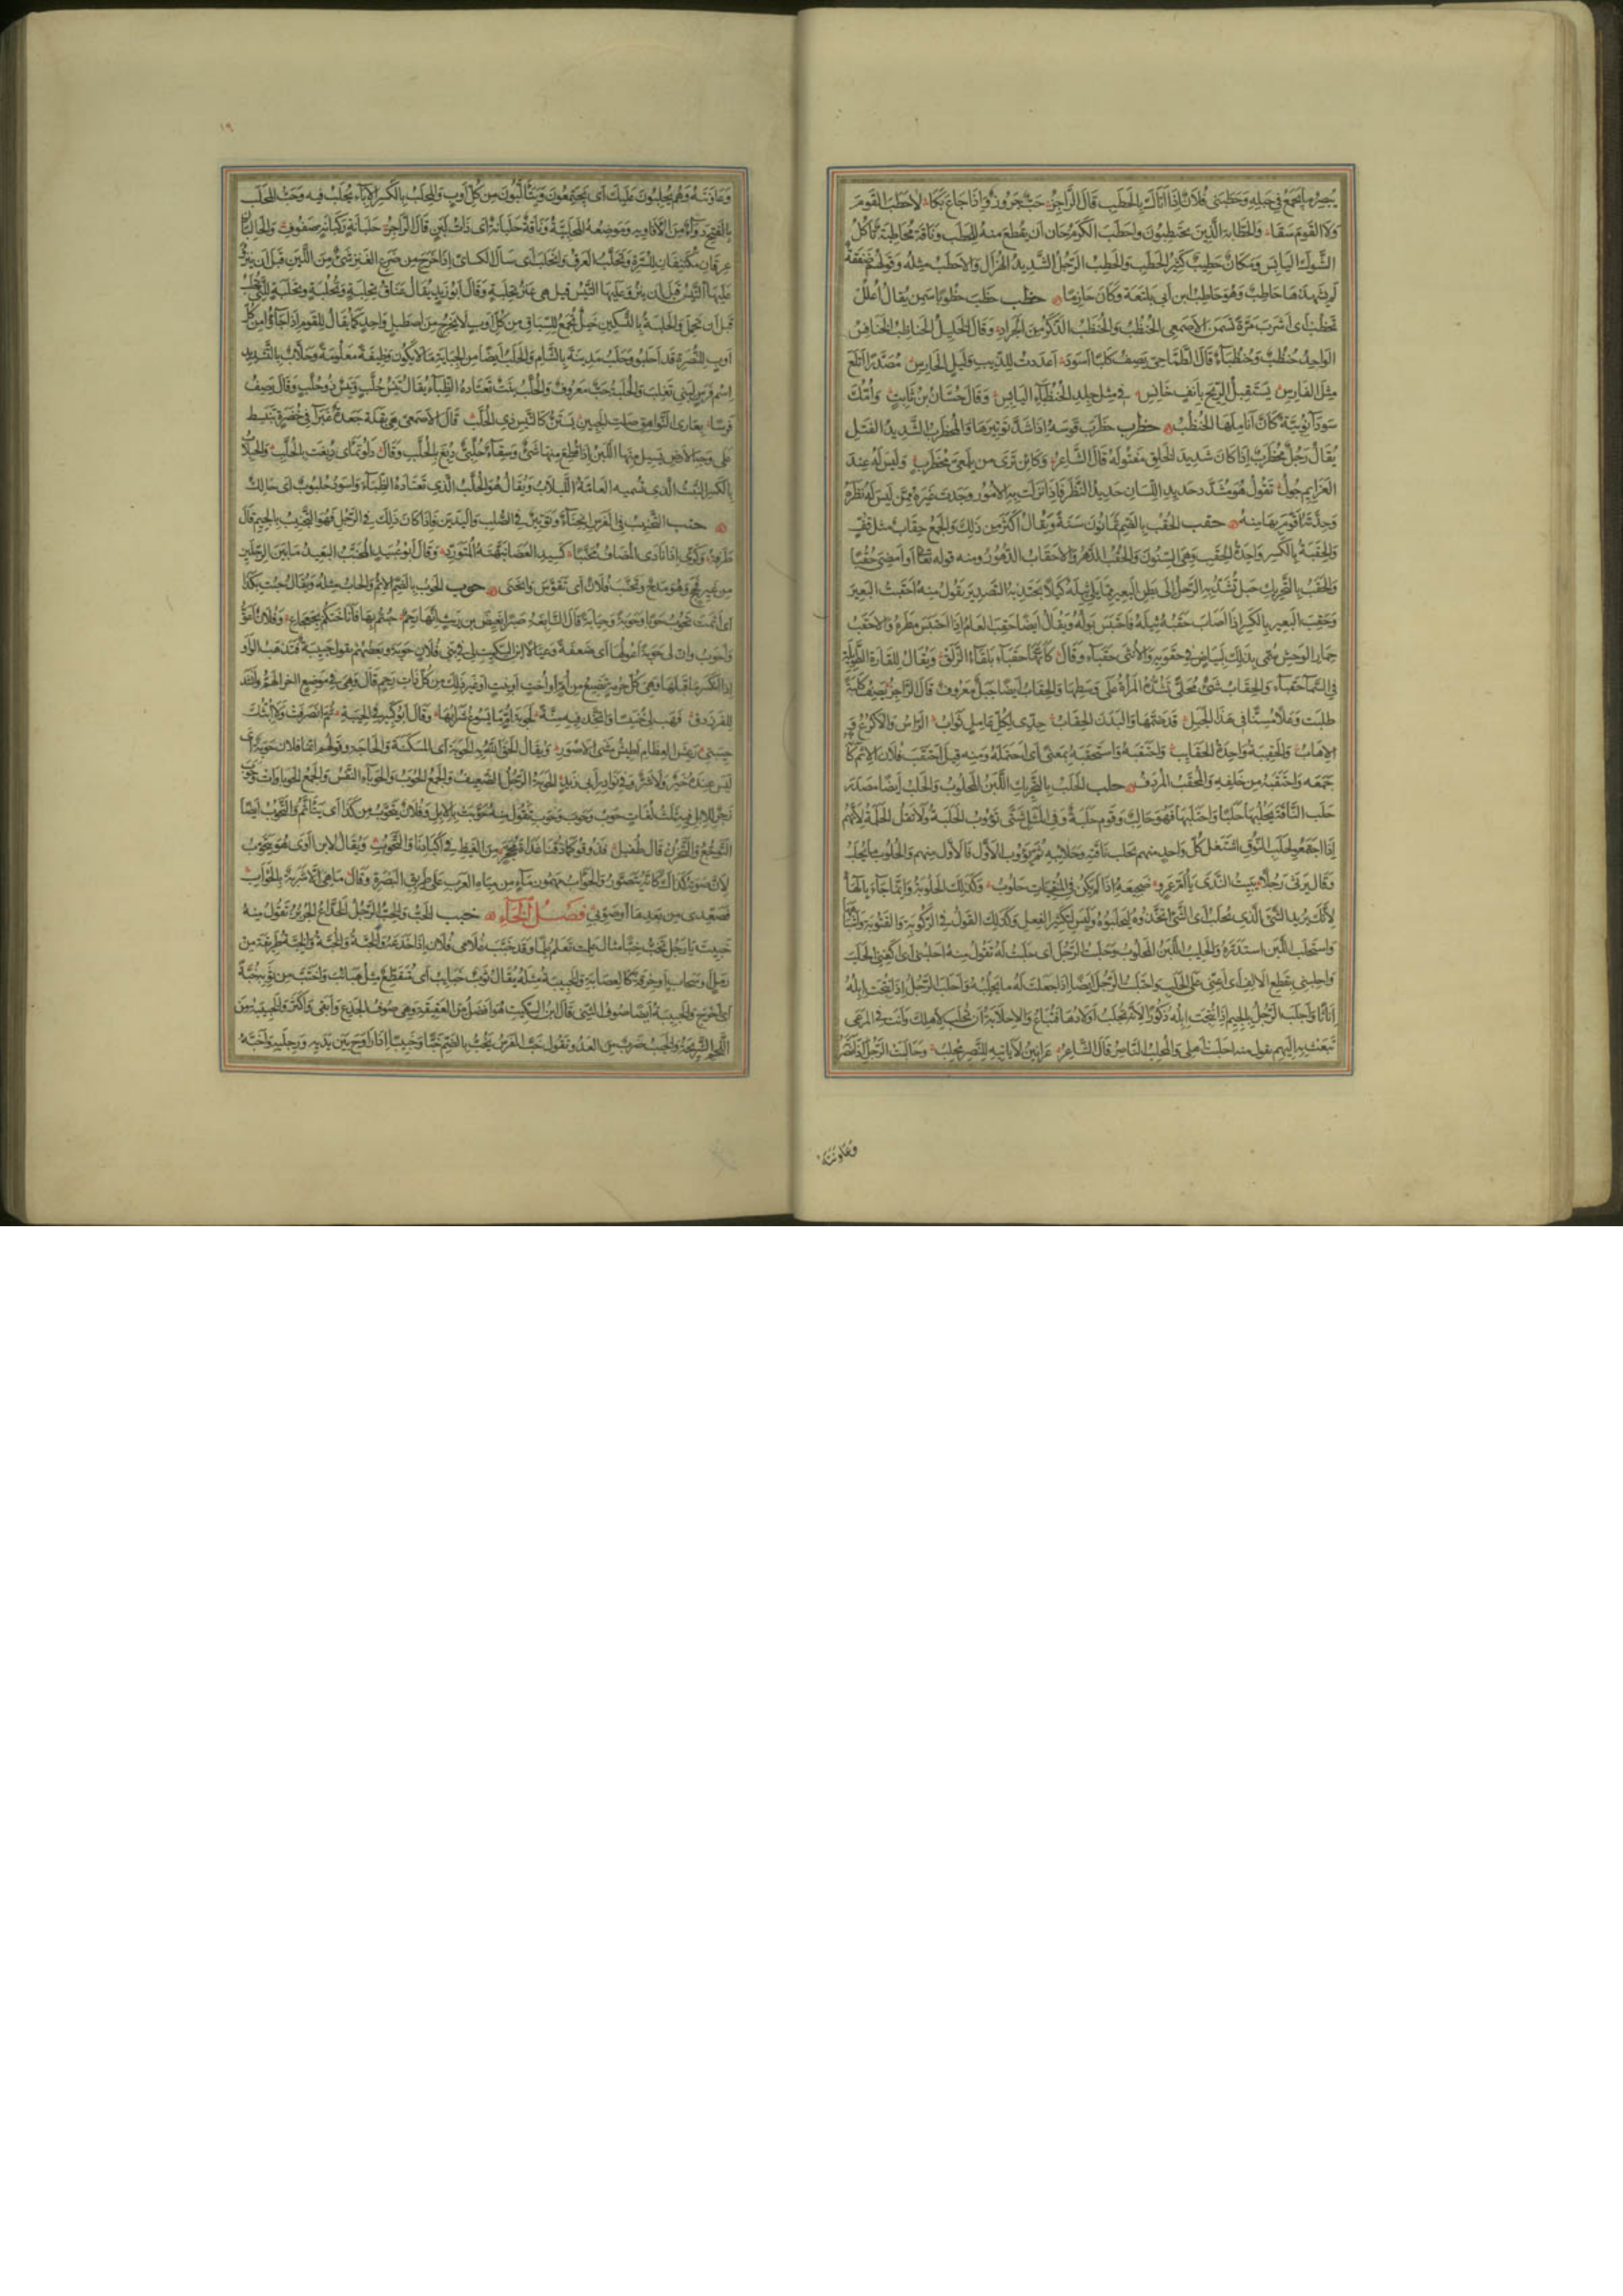 يبصر ما يجمع في حبله وحطبني فلان إذا أتاك بالحطب قال الراجز خب جروز وإذا جاع بكا لا حطب القوم
ولا القوم سقا والحطابة الذين يحتطبون واحطب الكرم حان أن يقطع منه الحطب وناقة محاطبة تأكل
الشوك اليابس ومكان حطيب كثير الحطب والحطب الرجل الشديد الهزال والاحطب مثله وقولهم صفقة
لم يشهدها حاطب وهو حاطب ابن أبي بلتعة وكان حازما حظب حظب حظوبا سمن يقال اعلل
تحظب أي اشرب مرة تسمن الأصمعي الحنظب والحنظب الذكر من الجراد وقال الخليل الحناظب الخنافس
الواحد حنظب وحنظباء قال الطماحي يصف كلبا أسود أعددت للذئب وليل الحارس مصدرا أتلع
مثل الفارس يستقبل الريح بأنف خانس في مثل جلد الحنظباء اليابس وقال حسان بن ثابت وأمك
سوداء نوبية كأن أناملها الحنظب حظرب حظرب قوسه إذا شد توتيرها والمحظرب الشديد الفتل
يقال رجل محظرب إذا كان شديد الخلق مفتوله قال الشاعر وكائن ترى من يلمعي محظرب وليس له عند
العزائم جول تقول هو مشدد حديد اللسان حديد النظر فإذا نزلت به الأمور وجدت غيره ممن ليس له نظره
وحدته أقوم بها منه حقب الحقب بالضم ثمانون سنة ويقال أكثر من ذلك والجمع حقاب مثل قف
والحقبة بالكسر واحدة الحقب وهي السنون والحقب الدهر والأحقاب الدهور ومنه قوله تعالى أو أمضي حقبا
والحقب بالتحريك حبل تشد به الرحل إلى بطن البعير مما يلي ثيله كيلا يجتذبه التصدير تقول منه أحقبت البعير
وحقب البعير بالكسر إذا أصاب حقبه ثيله فاحتبس بوله ويقال أيضا حقب العام إذا احتبس مطره والأحقب
حمار الوحش سمي بذلك لبياض في حقويه والأنثى حقباء وقال كأنها حقباء بلقاء الزلق ويقال للقارة الطويلة
في السماء حقباء والحقاب شيء محلى تشده المرأة على وسطها والحقاب أيضا جبل معروف قال الراجز يصف كلبة
طلبت وعلا مسنا في هذا الجبل قد ضمها والبدن الحقاب جدي لكل عامل ثواب الرأس والأكرع و
الإهاب والحقيبة واحدة الحقائب واحتقبه واستحقبه بمعنى أي احتمله ومنه قيل احتقب فلان الإثم كأنه
جمعه واحتقبه من خلفه والمحقب المردف حلب الحلب بالتحريك اللبن المحلوب والحلب أيضا مصدر
حلب الناقة يحلبها حلبا واحتلبها فهو حالب وقوم حلبة وفي المثل شتى تؤوب الحلبة ولا تقل الحلمة لأنهم
إذا اجتمعوا لحلب النوق اشتغل كل واحد منهم بحلب ناقته وحلائبه ثم يؤوب الأول فالأول منهم والحلوب ما يحلب
وقال يرثي رجلا يبيت الندى يا أم عمرو ضجيعه إذا لم يكن في المنقيات حلوب وكذلك الحلوبة وإنما جاء بالهاء
لأنك تريد الشيء الذي يحلب أي الشيء اتخذوه ليحلبوه وليس لتكثير الفعل وكذلك القول في الركوبة والقتوبة وأشباهها
واستحلب اللبن استدره والحليب اللبن المحلوب وحلبت الرجل أي حلبت له تقول منه احلبني أي اكفني الحلب
وأحلبني بقطع الألف أي أعني على الحلب وأحلبت الرجل أيضا إذا جعلت له ما يحلبه وأحلب الرجل إذا نتجت إبله
إناثا وأجلب الرجل بالجيم إذا نتجت إبله ذكورا لأنه تجلب أولادها فتباع والإحلابة أن تحلب لأهلك وأنت في المرعى
تبعث به إليهم تقول منه أحلبت أهلي والمحلب الناصر قال الشاعر عرانين لا يأتيه للنصر محلب وحالبت الرجل إذا نصرته
وعاونته
١٩
وعاونته وهم يحلبون عليك أي يجتمعون ويتألبون من كل أوب والمحلب بالكسر الإناء يحلب فيه وحب المحلب
بالفتح دواء من الأفاويه وموضعه المحلبية وناقة حلبانة أي ذات لبن قال الراجز حلبانة ركبانة صفوف والحالبان
عرقان مكتنفان للسرة وتحلب العرق وانحلب أي سال الكسائي إذا خرج من ضرع العنز شيء من اللبن قبل أن ينزو
عليها التيس قبل أن ينزو عليها التيس قيل هي عنز تحلبة وقال أبو زيد يقال عناق تحلبة وتحلبة وتحلبة للتي تحلب
قبل أن تحمل والحلبة بالتسكين خيل تجمع للسباق من كل أوب لا تخرج من اصطبل واحد كما يقال للقوم إذا جاؤا من كل
أوب للنصرة قد أحلبوا وحلب مدينة بالشام والحلب أيضا من الجباية ما لا يكون وظيفة معلومة وحلاب بالتشديد
اسم فرس لبني تغلب والحلبة حب معروف والحلب نبت تعتاده الظباء يقال تيس حلب وتيس ذو حلب وقال يصف
فرسا بعاري النواهق صلت الجبين يستن كالتيس ذي الحلب قال الأصمعي هي بقلة جعدة غبراء في خضرة تنبسط
على وجه الأرض يسيل منها اللبن إذا قطع منها شيء وسقاء حلبي دبغ بالحلب وقال دلو تمأى دبغت بالحلب والحلبلاب
بالكسر النبت الذي تسميه العامة اللبلاب ويقال هو الحلب الذي تعتاده الظباء وأسود حلبوب أي حالك
حنب التحنيب في الفرس انحناء وتوتير في الصلب واليدين فإذا كان ذلك في الرجل فهو التجنيب بالجيم قال
طرفة وكري إذا نادى المضاف محنبا كسيد الغضا نبهته المتورد وقال أبو عبيد المحنب البعيد ما بين الرجلين
من غير فحج وهو مدح وتحنب فلان أي تقوس وانحنى حوب الحوب بالضم الإثم والحاب مثله ويقال حبت بكذا
أي أثمت تحوب حوبا وحوبة وحيابة قال النابغة صبرا بغيض بن ريث إنها رحم حبتم بها فأناختكم بجعجاع وفلان أعق
وأحوب وإن لي حوبة أعولها أي ضعفة وعيالا ابن السكيت لي في بني فلان حوبة وبعضهم يقول حيبة فتذهب الواو
إذا انكسر ما قبلها وهي كل حرمة تضيع من أم أو أخت أو بنت أو غير ذلك من كل ذات رحم قال وهي في موضع آخر الهم وأنشد
للفرزدق فهب لي خنيسا واتخذ فيه منة لحوبة أم ما يسوغ شرابها وقال أبو كبير في الحيبة ثم انصرفت ولا أبثك
حيبتي رعش العظام أطيش مشي الأصور ويقال ألحق الله به الحوبة أي المسكنة والحاجة وقولهم إنما فلان حوبة أي
ليس عنده خير ولا شر وفي نوادر أبي زيد الحوبة الرجل الضعيف والجمع الحوب والحوباء النفس والجمع الحوباوات وحوب
زجر للإبل فيه ثلث لغات حوب وحوب وحوب تقول منه حوبت بالإبل وفلان يتحوب من كذا أي يتأثم والتحوب أيضا
التوجع والتحزن قال طفيل فذوقوا كما ذقنا غداة محجر من الغيظ في أكبادنا والتحوب ويقال لابن آوى هو يتحوب
لأن صوته كذلك كأنه يتضور والحوأب مهموز ماء من مياه العرب على طريق البصرة وقال ما هي إلا شربة بالحوأب
فصعدي من بعدها أو صوبي فصل الخاء خبب الخب والخب الرجل الخداع الجربز تقول منه
خببت يا رجل تخب خبا مثال علمت تعلم علما وقد خبب غلامي فلان إذا خدعه والخبة والخبة والخبة طريقة من
رمل أو سحاب أو خرقة كالعصابة والخبيبة مثله يقال ثوب خبايب أي متقطع مثل هبايب واختب من ثوبه خبة
أي أخرج والخبيبة أيضا صوف الثني قال ابن السكيت هو أفضل من العقيقة وهي صوف الجذع وأبقى وأكثر والخبيبة من
اللحم الشريحة والخبب ضرب من العدو وتقول خب الفرس يخب بالضم خبا وخببا وخبيبا إذا راوح بين يديه ورجليه وأخبه